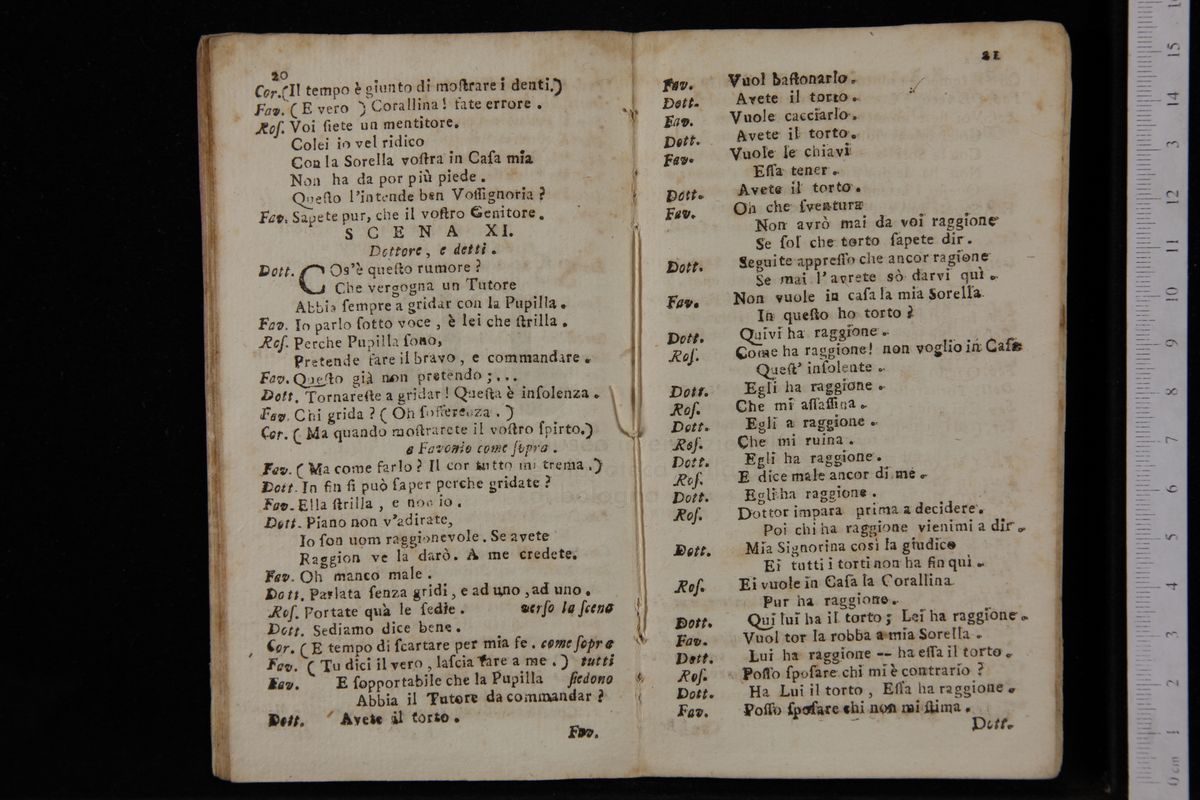 20
Cor. (Il tempo è giunto di moſtrare i denti.)
Fav. ( E vero ) Corallina! fate errore .
Roſ. Voi ſiete un mentitore.
Colei io vel ridico
Con la Sorella voſtra in Caſa mia
Non ha da por più piede .
Queſto l'intende ben Voſſignoria ?
Fav. Sapete pur, che il voſtro Genitore.
SCENA XI.
Dottore, e detti .
Dott. COs'è queſto rumore ?
Che vergogna un Tutore
Abbia ſempre a gridar con la Pupilla .
Fav. Io parlo ſotto voce , è lei che ſtrilla .
Roſ. Perche Pupilla ſono,
Pretende fare il bravo , e commandare .
Fav. Queſto già non pretendo ; ...
Dott. Tornareſte a gridar! Queſta è inſolenza .
Fav. Chi grida ? ( Oh ſofferenza . )
Cor. ( Ma quando moſtrarete il voſtro ſpirto.)
a Favonio come ſopra .
Fav. ( Ma come farlo ? Il cor tutto mi trema .)
Dott. In fin ſi può ſaper perche gridate ?
Fav. Ella ſtrilla , e non io .
Dott. Piano non v'adirate,
Io ſon uom raggionevole . Se avete
Raggion ve la darò. A me credete.
Fav. Oh manco male .
Dott. Parlata ſenza gridi, e ad uno , ad uno .
Roſ. Portate quà le ſedie . verſo la ſcena
Dott. Sediamo dice bene .
Cor. ( E tempo di ſcartare per mia fe . come ſopra
Fav. ( Tu dici il vero , laſcia fare a me . ) tutti
Fav. E ſopportabile che la Pupilla ſiedono
Abbia il Tutore da commandar ?
Dott. Avete il torto .
Fav.
21
Fav. Vuol baſtonarlo .
Dott. Avete il torto .
Fav. Vuole cacciarlo .
Dott. Avete il torto .
Fav. Vuole le chiavi
Eſſa tener .
Dott. Avete il torto .
Fav. Oh che ſventura
Non avrò mai da voi raggione
Se ſol che torto ſapete dir .
Dott. Seguite appreſſo che ancor ragione
Se mai l'avrete sò darvi quì .
Fav. Non vuole in caſa la mia Sorella
In queſto ho torto ?
Dott. Quivi ha raggione .
Roſ. Come ha raggione! non voglio in Caſa
Queſt' inſolente .
Dott. Egli ha raggione .
Roſ. Che mi aſſaſſina .
Dott. Egli a raggione .
Roſ. Che mi ruina .
Dott. Egli ha raggione .
Roſ. E dice male ancor di me .
Dott. Egli ha raggione .
Roſ. Dottor impara prima a decidere.
Poi chi ha raggione vienimi a dir .
Dott. Mia Signorina così la giudico
Ei tutti i torti non ha fin qui .
Roſ. Ei vuole in Caſa la Corallina
Pur ha raggione .
Dott. Qui lui ha il torto ; Lei ha raggione .
Fav. Vuol tor la robba a mia Sorella .
Dott. Lui ha raggione -- ha eſſa il torto .
Roſ. Poſſo ſpoſare chi mi è contrario ?
Dott. Ha Lui il torto , Eſſa ha raggione .
Fav. Poſſo ſpoſare chi non mi ſtima .
Dott.
15
14
13
12
11
10
9
8
7
6
5
4
3
2
1
0 cm